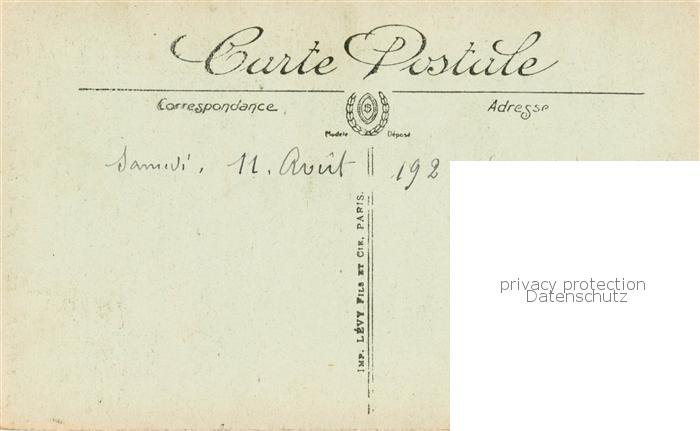 Carte Postale
Correspondance
Adresse
Modèle Déposé
Samedi, 11. Août 192
IMP. LÉVY FILS ET CIE, PARIS.
privacy protection
Datenschutz